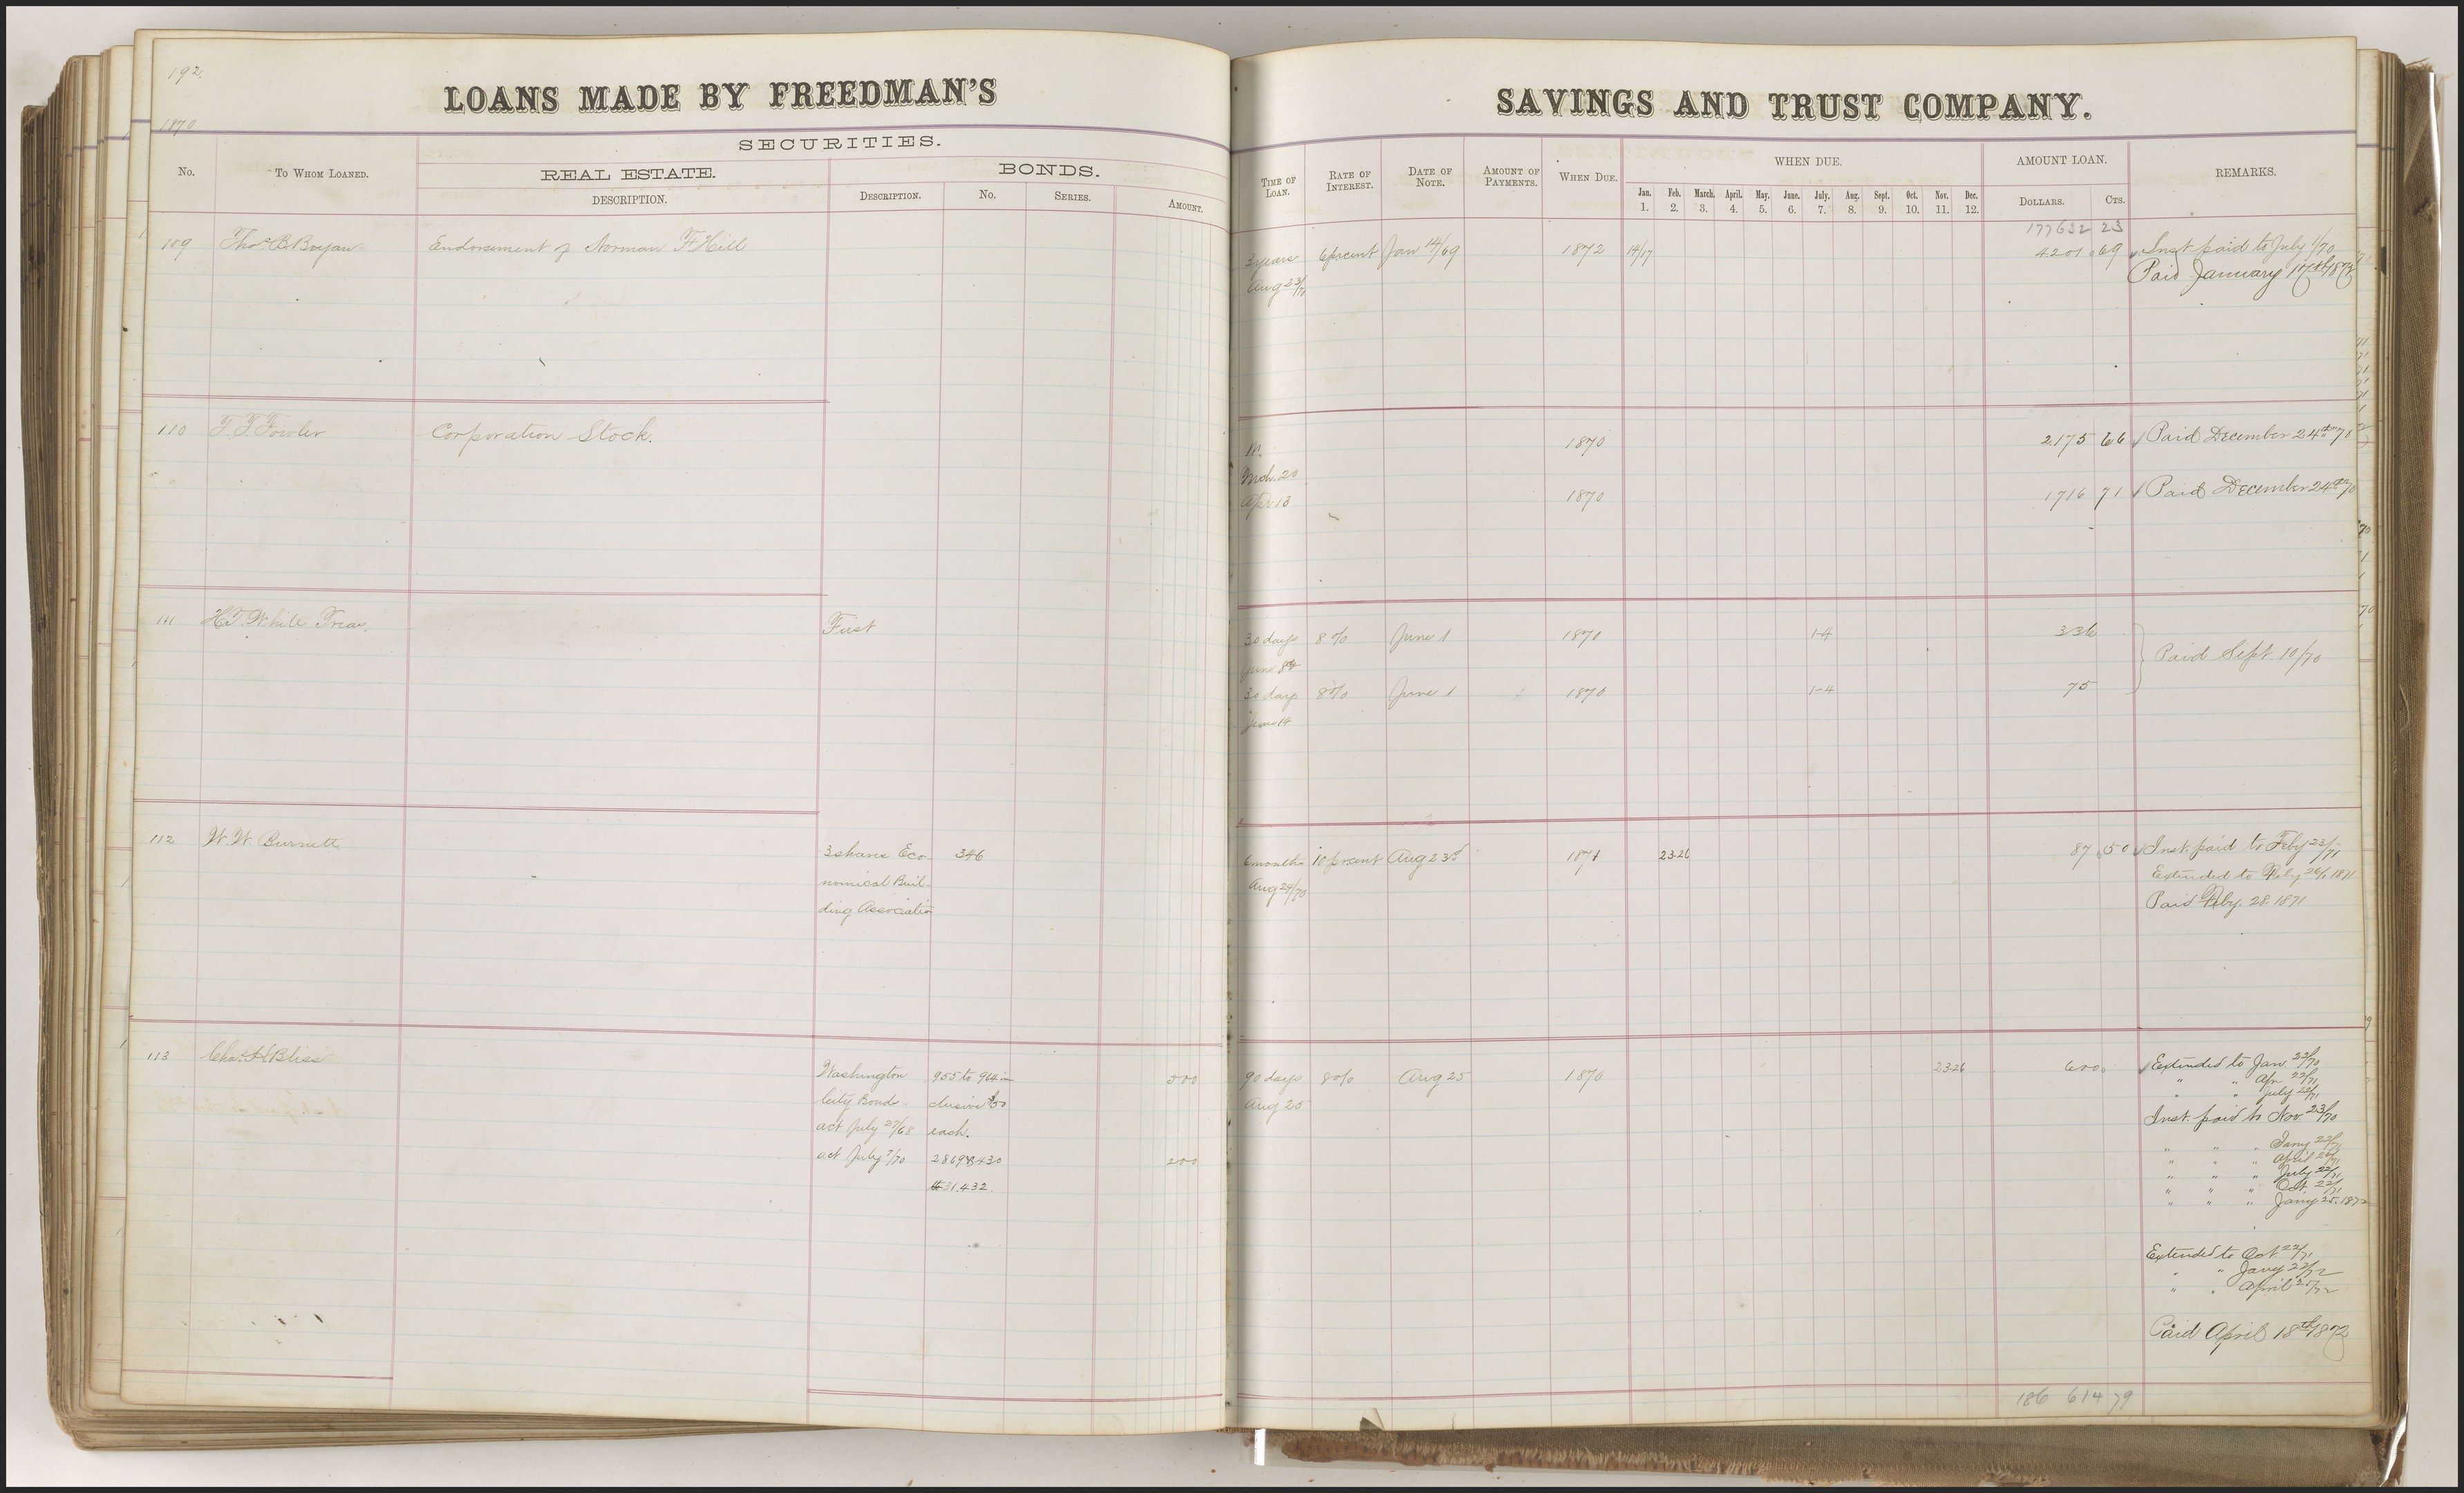 192
1870
LOANS MADE BY FREEDMAN'S
SECURITIES.
No.
To Whom Loaned.
REAL ESTATE.
DESCRIPTION.
BONDS.
Description.
No.
Series.
Amount.
109 Thos. B. Bryan Endorsement of Norman F Hill
110 T. T. Fowler Corporation Stock.
111 H. T. White Treas. First
112 W. W Burnett 3 shares Eco- 346
nomical Buil-
ding Association
113 Chas. H. Bliss Washington 955 to 964 in 500
City Bonds clusive $50
act July 27/68 each.
act July 7/70 2869 & 430 200
31,432
SAVINGS AND TRUST COMPANY.
Time of Loan.
Rate of Interest.
Date of Note.
Amount of Payments.
When Due.
WHEN DUE.
Jan. 1.
Feb. 2.
March. 3.
April. 4.
May. 5.
June. 6.
July. 7.
Aug. 8.
Sept. 9.
Oct. 10.
Nov. 11.
Dec. 12.
AMOUNT LOAN.
Dollars.
Cts.
REMARKS.
177632 23
3 years 6 prcent Jan 14/69 1872 14/17 4201 69 Inst. paid to July 1/70
Aug 23/70 Paid January 17th 1872
1870 2175 66 Paid December 24th 70
Mch. 20
Apr 13 1870 1716 71 Paid December 24th 70
30 days 8 % June 1 1870 1-4 336
June 8th Paid Sept. 10/70
30 days 8 % June 1 1870 1-4 75
June 14
6 months 10 prcent Aug 23d 1871 23.26 87 50 Inst. paid to Feby 23/71
Aug 24/70 Extended to Feby 26/1871
Paid Feby. 28. 1871
90 days 8 % Aug 25 1870 23.26 600 Extended to Jan 22/70
Aug 25 " " Apr 22/71
" " July 22/71
Inst. paid to Nov 23/70
" " " Jany 22/71
" " " April 22/71
" " " July 22/71
" " " Oct. 22/71
" " " Jany 25. 1872
Extended to Oct 22/71
" " Jany 22/72
" " April 25/72
Paid April 18th 1872
186 614 79